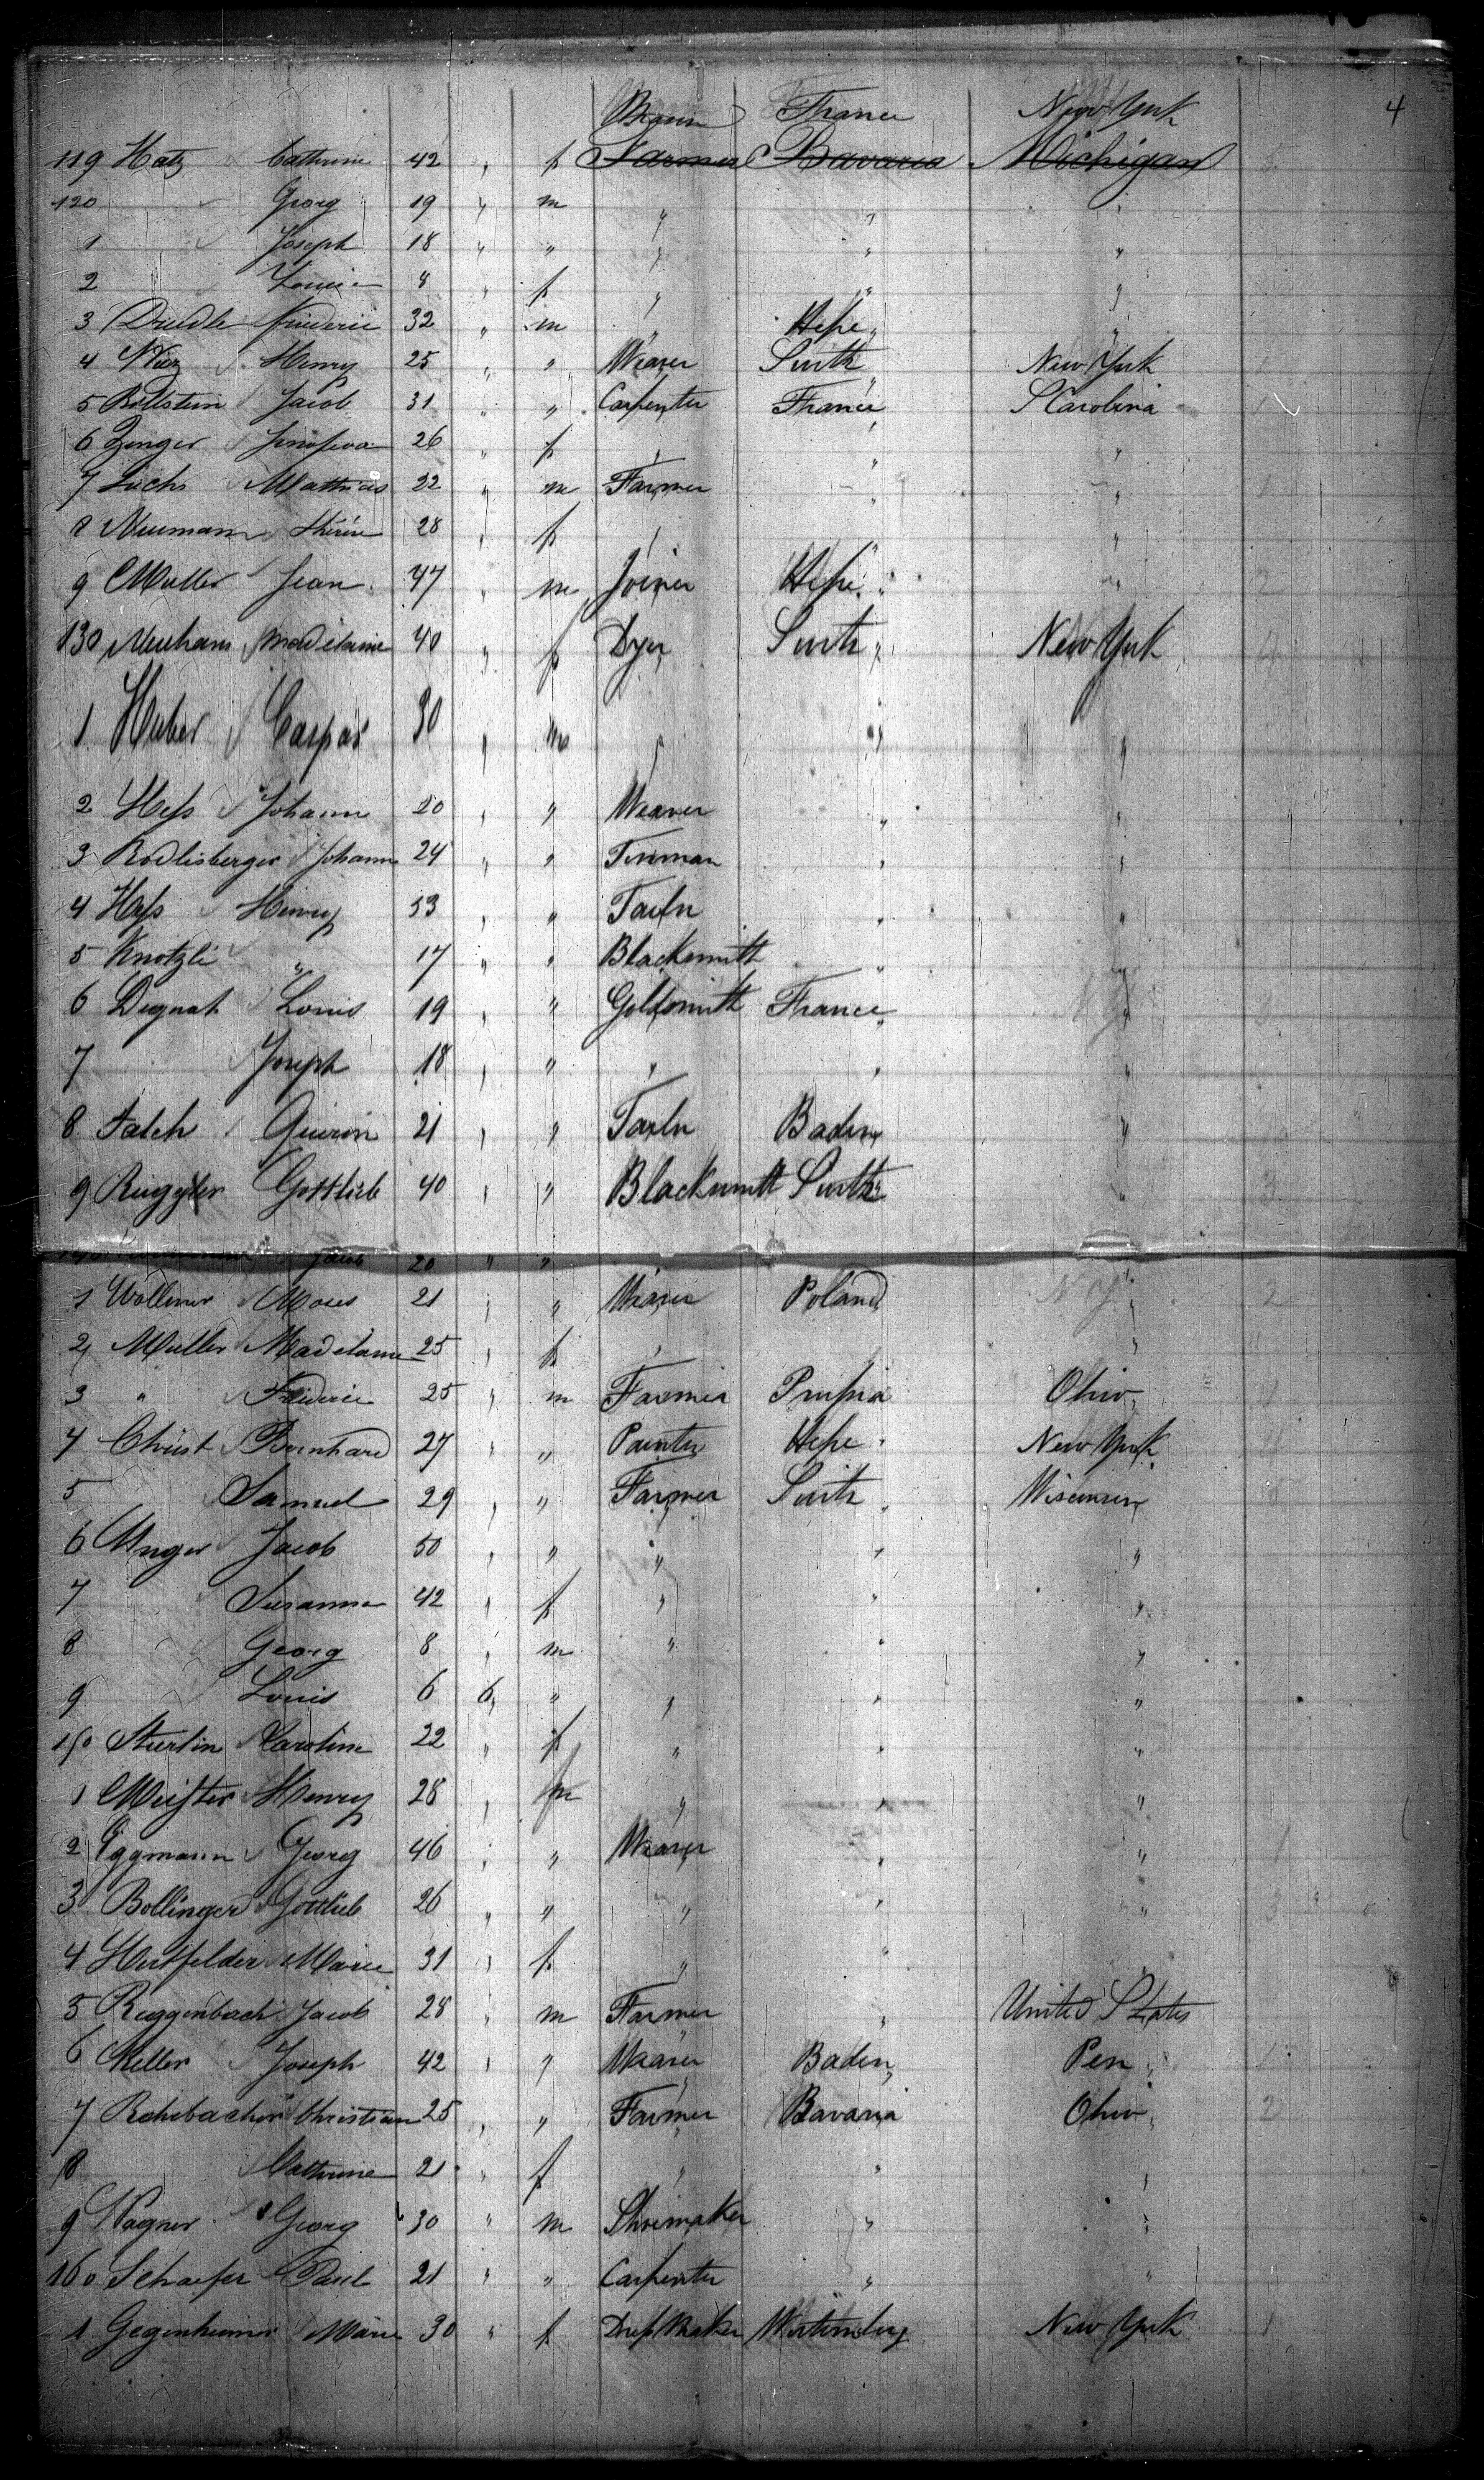 4
Weaver France New York
119 Hatz Catherine 42 " f Farmer Bavaria Michigan 5
120 Georg 19 " m " " "
1 Joseph 18 " " " " "
2 Louise 8 " f " " "
3 Friederic 32 " m " Heße "
4 Henry 25 " " Weaver Switz New York
5 Bollstein Jacob 31 " " Carpenter France S Carolina
6 Zenger 26 " f " " "
7 Luchs Matthias 22 " m Farmer " "
8 Neumann 28 " f " " "
9 Muller Jean 47 " m Joiner Heße " 2
130 Neuhaus Madelaine 40 " f Dyer Switz New York 4
1 Huber Caspar 30 " m " " "
2 Heß Johann 20 " " Weaver " "
3 Rodlisberger Johann 24 " " Tinman " "
4 Heß Henry 53 " " Tailor " "
5 Knotzli " 17 " " Blacksmith " "
6 Dognat Louis 19 " " Goldsmith France "
7 Joseph 18 " " " " "
8 Falch Quirin 21 " " Tailor Baden "
9 Ruggler Gottlieb 40 " " Blacksmith Switz " 3
Jacob 20 " "
1 Wollmer Moses 21 " " Weaver Poland N Y 2
2 Muller Madelaine 25 " f " " "
3 " Frederic 25 " m Farmer Prußia Ohio
4 Christ Bernhard 27 " " Painter Heße New York
5 Samuel 29 " " Farmer Switz Wisconsin
6 Unger Jacob 50 " " " " "
7 Susanna 42 " f " " "
8 Georg 8 " m " " "
9 Louis 6 6 " " " "
150 Stierlin Caroline 22 " f " " "
1 Meister Henry 28 " m " " "
2 Eggmann Georg 46 " " Weaver " "
3 Bollinger Gottlieb 26 " " " " " 3
4 Hertfelder Marie 31 " f " "
5 Reggenbach Jacob 28 " m Farmer " United States
6 Keller Joseph 42 " " Weaver Baden Pen
7 Rohrbacher Christian 25 " " Farmer Bavaria Ohio 2
8 Catherine 21 " f " " "
9 Wagner Georg 30 " m Shoemaker " "
160 Schaefer Paul 21 " " Carpenter " "
1 Gegenheimer Marie 30 " f Dreß Maker Wurtemberg New York 1